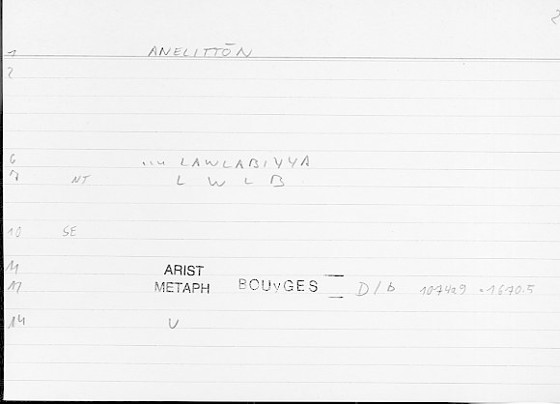 2
1 ANELITTŌN
2
6 .... LAWLABIYYA
7 NT L W L B
10 SE
11 ARIST
17 METAPH BOUyGES D/b 1074a9 = 1670.5
14 V